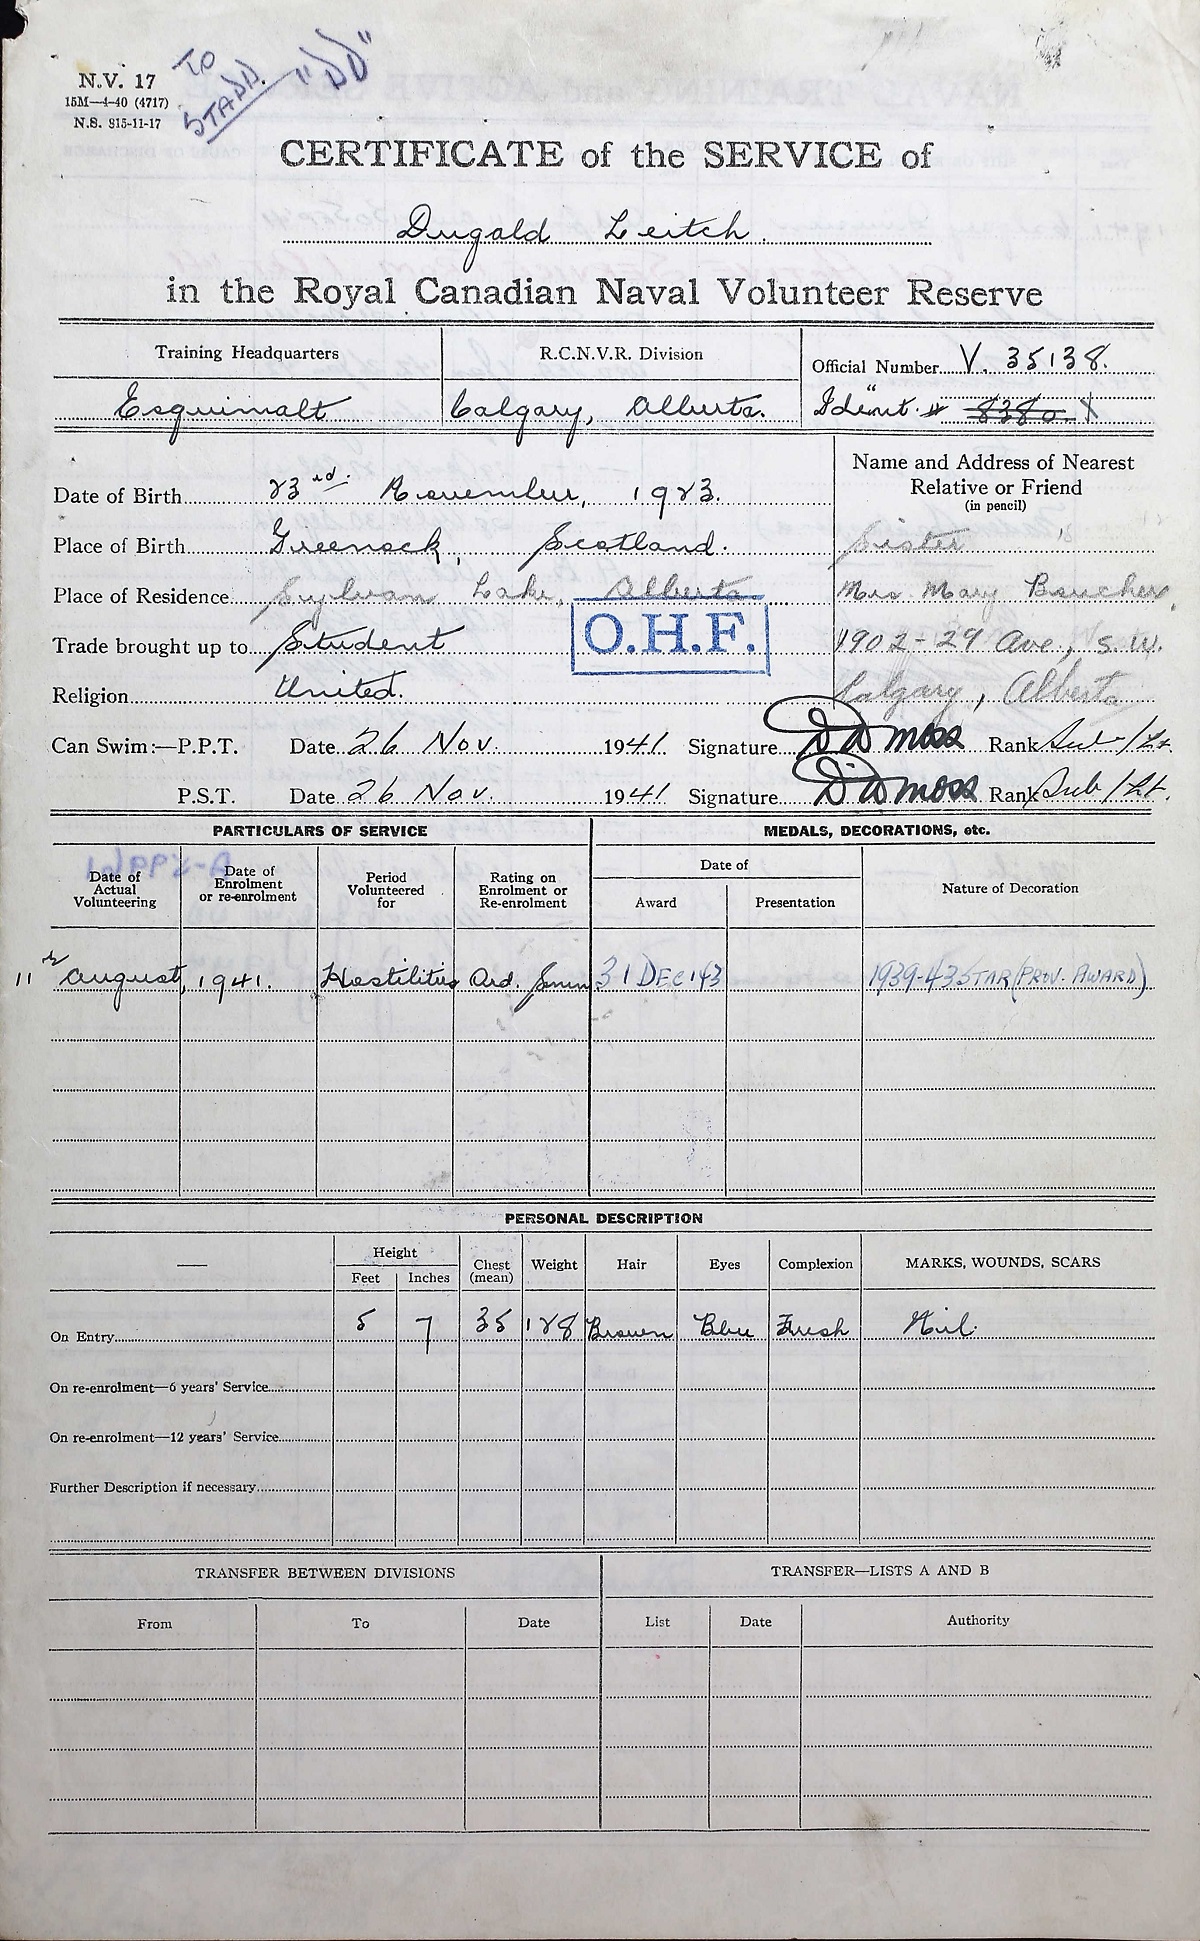 N.V. 17
15M—4-40 (4717)
N.S. 815-11-17
TO
STADA. "DD"
CERTIFICATE of the SERVICE of
Dugald Leitch.
in the Royal Canadian Naval Volunteer Reserve
Training Headquarters R.C.N.V.R. Division Official Number V. 35138.
Esquimalt Calgary, Alberta. Ident. # 8380 X
Name and Address of Nearest
Relative or Friend
(in pencil)
Date of Birth 23rd. November, 1923.
Place of Birth Greenock, Scotland. Sister
Place of Residence Sylvan Lake, Alberta Mrs. Mary Boucher,
O.H.F.
Trade brought up to Student 1902-29 Ave., S.W.
Religion United. Calgary, Alberta
Can Swim:—P.P.T. Date 26 Nov. 1941 Signature D D Moss Rank Sub/Lt.
P.S.T. Date 26 Nov. 1941 Signature D D Moss Rank Sub/Lt.
PARTICULARS OF SERVICE MEDALS, DECORATIONS, etc.
Date of Actual Volunteering Date of Enrolment or re-enrolment Period Volunteered for Rating on Enrolment or Re-enrolment Date of Nature of Decoration
Award Presentation
11th August, 1941. Hostilities Ord. Smn 31 DEC '43 1939-43 STAR (PROV. AWARD)
PERSONAL DESCRIPTION
— Height Chest (mean) Weight Hair Eyes Complexion MARKS, WOUNDS, SCARS
Feet Inches
On Entry 5 7 35 128 Brown Blue Fresh Nil.
On re-enrolment—6 years' Service
On re-enrolment—12 years' Service
Further Description if necessary
TRANSFER BETWEEN DIVISIONS TRANSFER—LISTS A AND B
From To Date List Date Authority